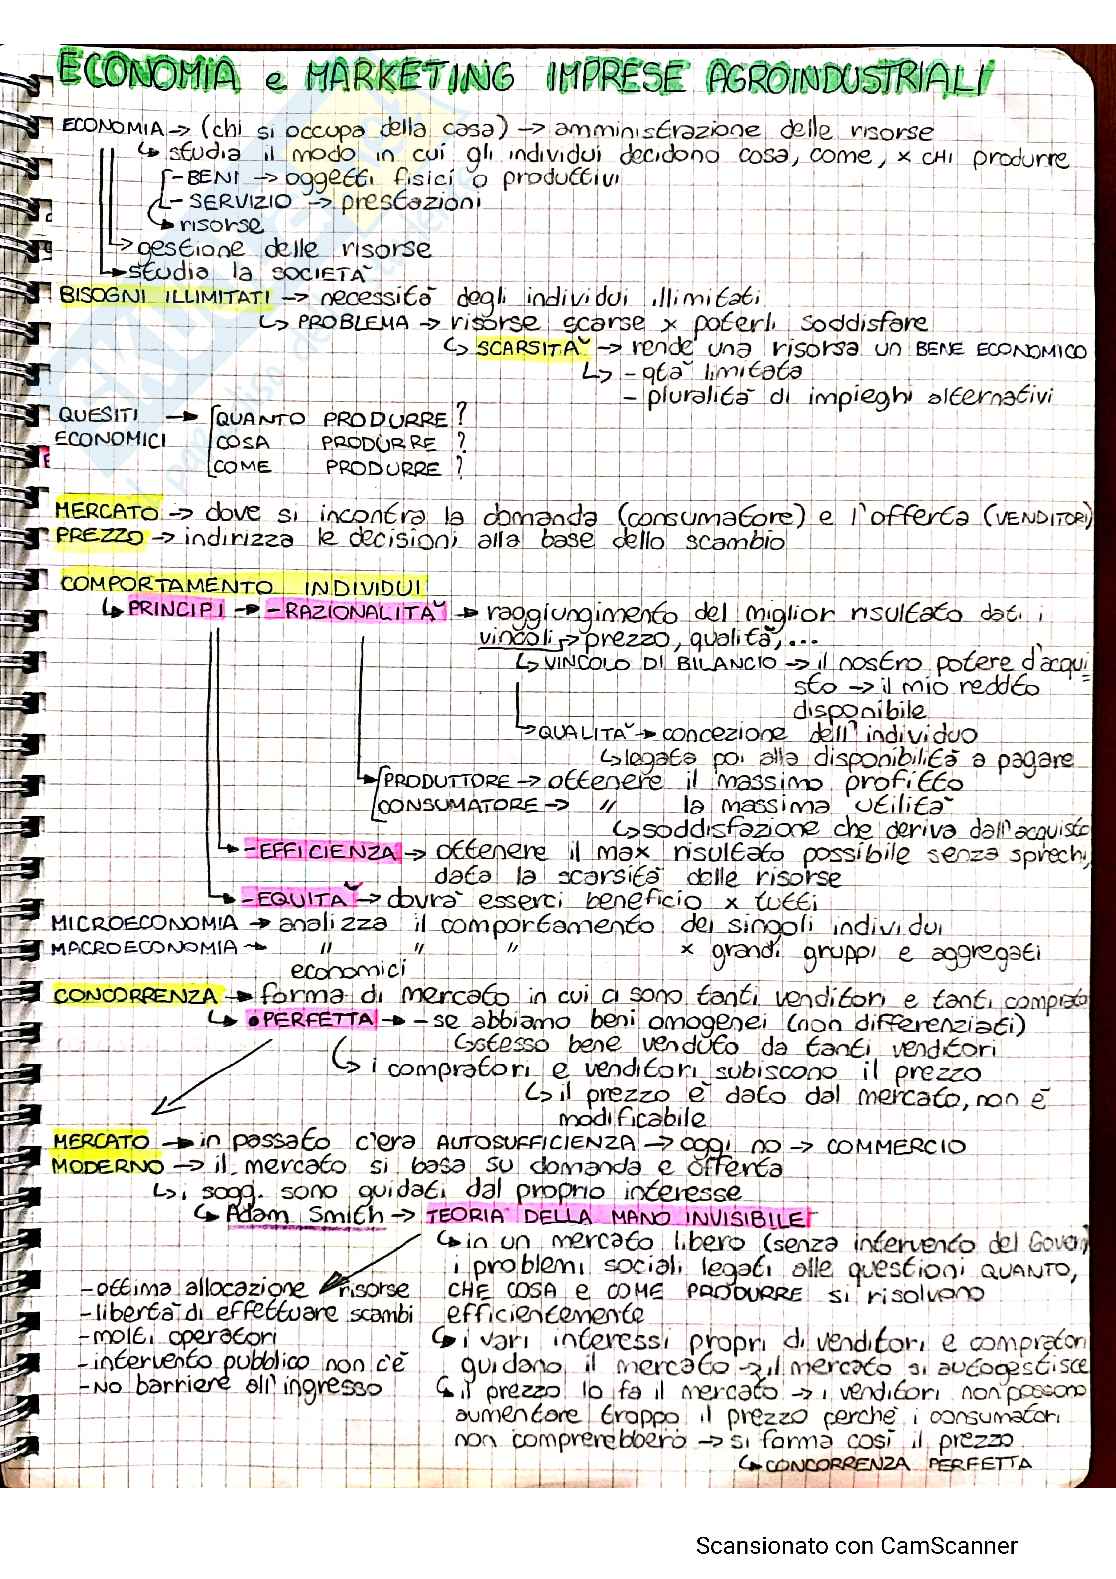 ECONOMIA e MARKETING IMPRESE AGROINDUSTRIALI
ECONOMIA → (chi si occupa della casa) → amministrazione delle risorse
↳ studia il modo in cui gli individui decidono cosa, come, x CHI produrre
- BENI → oggetti fisici o produttivi
- SERVIZIO → prestazioni
↳ risorse
→ gestione delle risorse
→ studia la SOCIETÀ
BISOGNI ILLIMITATI → necessità degli individui illimitati
↳ PROBLEMA → risorse scarse x poterli soddisfare
↳ SCARSITÀ → rende una risorsa un BENE ECONOMICO
↳ - qtà limitata
- pluralità di impieghi alternativi
QUESITI → QUANTO PRODURRE?
ECONOMICI COSA PRODURRE?
COME PRODURRE?
MERCATO → dove si incontra la domanda (consumatore) e l'offerta (VENDITORI)
PREZZO → indirizza le decisioni alla base dello scambio
COMPORTAMENTO INDIVIDUI
↳ PRINCIPI → - RAZIONALITÀ → raggiungimento del miglior risultato dati i
vincoli → prezzo, qualità, ...
↳ VINCOLO DI BILANCIO → il nostro potere d'acqui
sto → il mio reddito
disponibile
→ QUALITÀ → concezione dell'individuo
↳ legata poi alla disponibilità a pagare
→ PRODUTTORE → ottenere il massimo profitto
CONSUMATORE → " la massima utilità
↳ soddisfazione che deriva dall'acquisto
→ - EFFICIENZA → ottenere il max risultato possibile senza sprechi,
data la scarsità delle risorse
→ - EQUITÀ → dovrà esserci beneficio x tutti
MICROECONOMIA → analizza il comportamento dei singoli individui
MACROECONOMIA → " " " x grandi gruppi e aggregati
economici
CONCORRENZA → forma di mercato in cui ci sono tanti venditori e tanti comprato
↳ • PERFETTA → - se abbiamo beni omogenei (non differenziati)
↳ stesso bene venduto da tanti venditori
↳ i compratori e venditori subiscono il prezzo
↳ il prezzo è dato dal mercato, non è
modificabile
MERCATO → in passato c'era AUTOSUFFICIENZA → oggi no → COMMERCIO
MODERNO → il mercato si basa su domanda e offerta
↳ i sogg. sono guidati dal proprio interesse
↳ Adam Smith → TEORIA DELLA MANO INVISIBILE
↳ in un mercato libero (senza intervento del Govern)
i problemi sociali legati alle questioni QUANTO,
CHE COSA e COME PRODURRE si risolvono
efficientemente
↳ i vari interessi propri di venditori e compratori
guidano il mercato → il mercato si autogestisce
↳ il prezzo lo fa il mercato → i venditori non possono
aumentare troppo il prezzo perché i consumatori
non comprerebbero → si forma così il prezzo
↳ CONCORRENZA PERFETTA
- ottima allocazione risorse
- libertà di effettuare scambi
- molti operatori
- intervento pubblico non c'è
- NO barriere all'ingresso
Scansionato con CamScanner